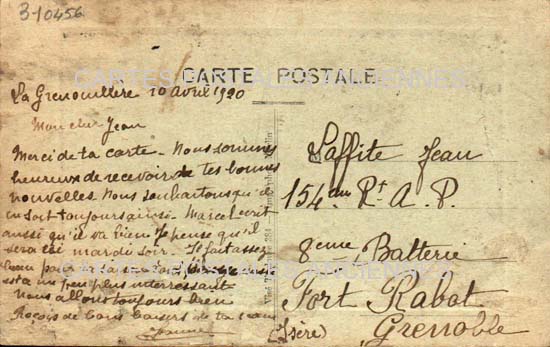 3-10456
CARTE POSTALE
CARTES POSTALES ANCIENNES
La Grenouillère 10 avril 1920
Mon cher Jean
Merci de ta carte - Nous sommes
heureux de recevoir de tes bonnes
nouvelles. Nous souhaitons qu'il
en soit toujours ainsi. Marcel écrit
aussi qu'il va bien. Je pense qu'il
sera ici mardi soir. Il fait assez
beau
est un peu plus intéressant
Nous allons toujours bien
Reçois de bons baisers de ta
Laffite Jean
154eme Rt A. P.
8eme Batterie
Fort Rabot
Grenoble
(Isère)